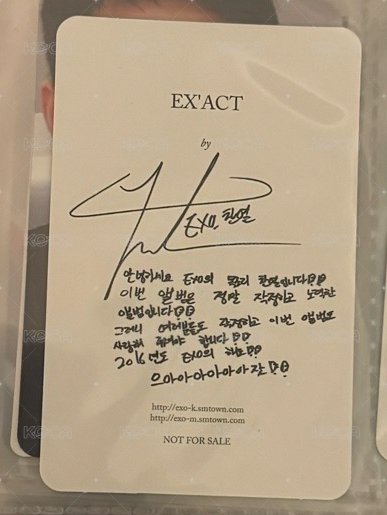 EX'ACT
by
EXO 찬열
안녕하세요 EXO의 찬열입니다
이번 앨범은 정말 작정하고 노력한
앨범입니다
그러니 여러분들도 작정하고 이번 앨범도
사랑해 줘야 합니다
2016년도 EXO의 해
으아아아아아자
http://exo-k.smtown.com
http://exo-m.smtown.com
NOT FOR SALE